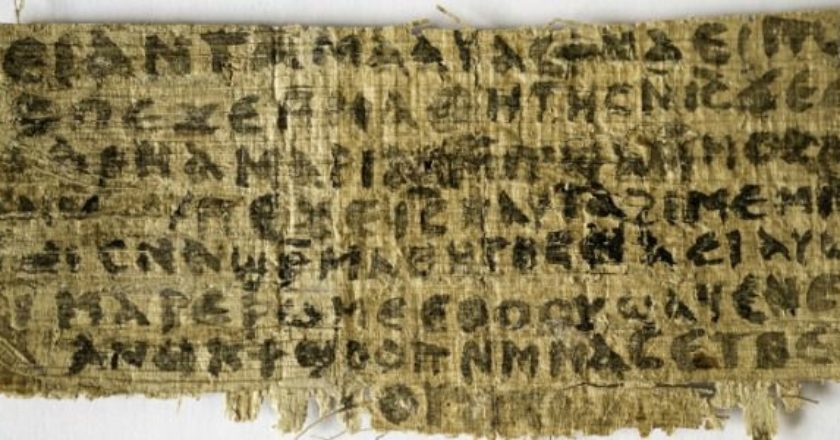 ⲉⲓ ⲁⲛ ⲧⲁⲙⲁⲁⲩ ⲁⲥϯ ⲛⲁⲉⲓ ⲡ
ⲡⲉϫⲉ ⲙⲙⲁⲑⲏⲧⲏⲥ ⲛⲓ̅ⲥ̅ ϫⲉ
ⲁⲣⲛⲁ ⲙⲁⲣⲓⲁⲙ ⲙⲡϣⲁ ⲙⲙⲟⲥ
ⲡⲉϫⲉ ⲓ̅ⲥ̅ ⲛⲁⲩ ⲧⲁϩⲓⲙⲉ ⲙⲛ
ⲥⲛⲁϣⲣ̅ⲙⲁⲑⲏⲧⲏⲥ ⲛⲁⲉⲓ ⲁⲩⲱ
ⲙⲁⲣⲉⲣⲱⲙⲉ ⲉⲑⲟⲟⲩ ϣⲁϥⲉ ⲛⲉ
ⲁⲛⲟⲕ ϯϣⲟⲟⲡ ⲛⲙⲙⲁⲥ ⲉⲧⲃⲉ